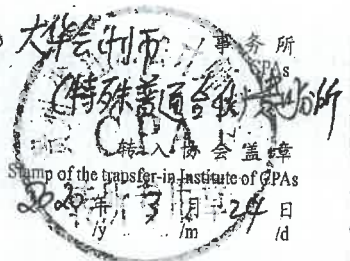 大华会计师 事务所
CPAs
(特殊普通合伙)
转入协会盖章
Stamp of the transfer-in Institute of CPAs
2020年 3月 24日
/y /m /d